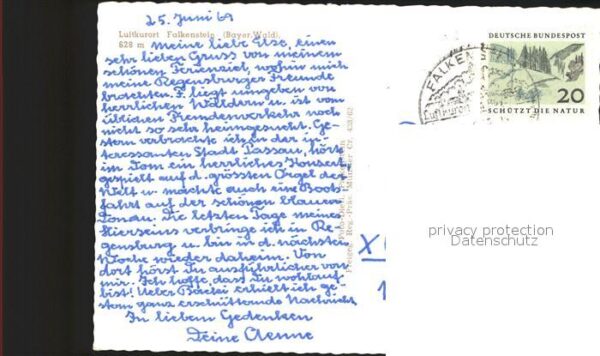 25. Juni 69
Luftkurort Falkenstein (Bayer. Wald),
628 m
Meine liebe Else, einen
sehr lieben Gruss von meinem
schönen Ferienziel, wohin mich
meine Regensburger Freunde
brachten. F. liegt umgeben von
herrlichen Wäldern u. ist vom
üblichen Fremdenverkehr noch
nicht so sehr heimgesucht. Ge-
stern verbrachte ich in der in-
teressanten Stadt Passau, hörte
im Dom ein herrliches Konzert
gespielt auf d. grössten Orgel der
Welt u. machte auch eine Boots
fahrt auf der schönen blauen
Donau. Die letzten Tage meines
Hierseins verbringe ich in Re-
gensburg u. bin in d. nächsten
Woche wieder daheim. Von
dort hörst Du ausführlicher von
mir. Ich hoffe, dass Du wohlauf
bist! Ueber erhielt ich ge
stern ganz erschütternde Nachricht.
In lieben Gedenken
Deine Aenne
DEUTSCHE BUNDESPOST
20
SCHÜTZT DIE NATUR
FALKEN
Luftkurort
privacy protection
Datenschutz